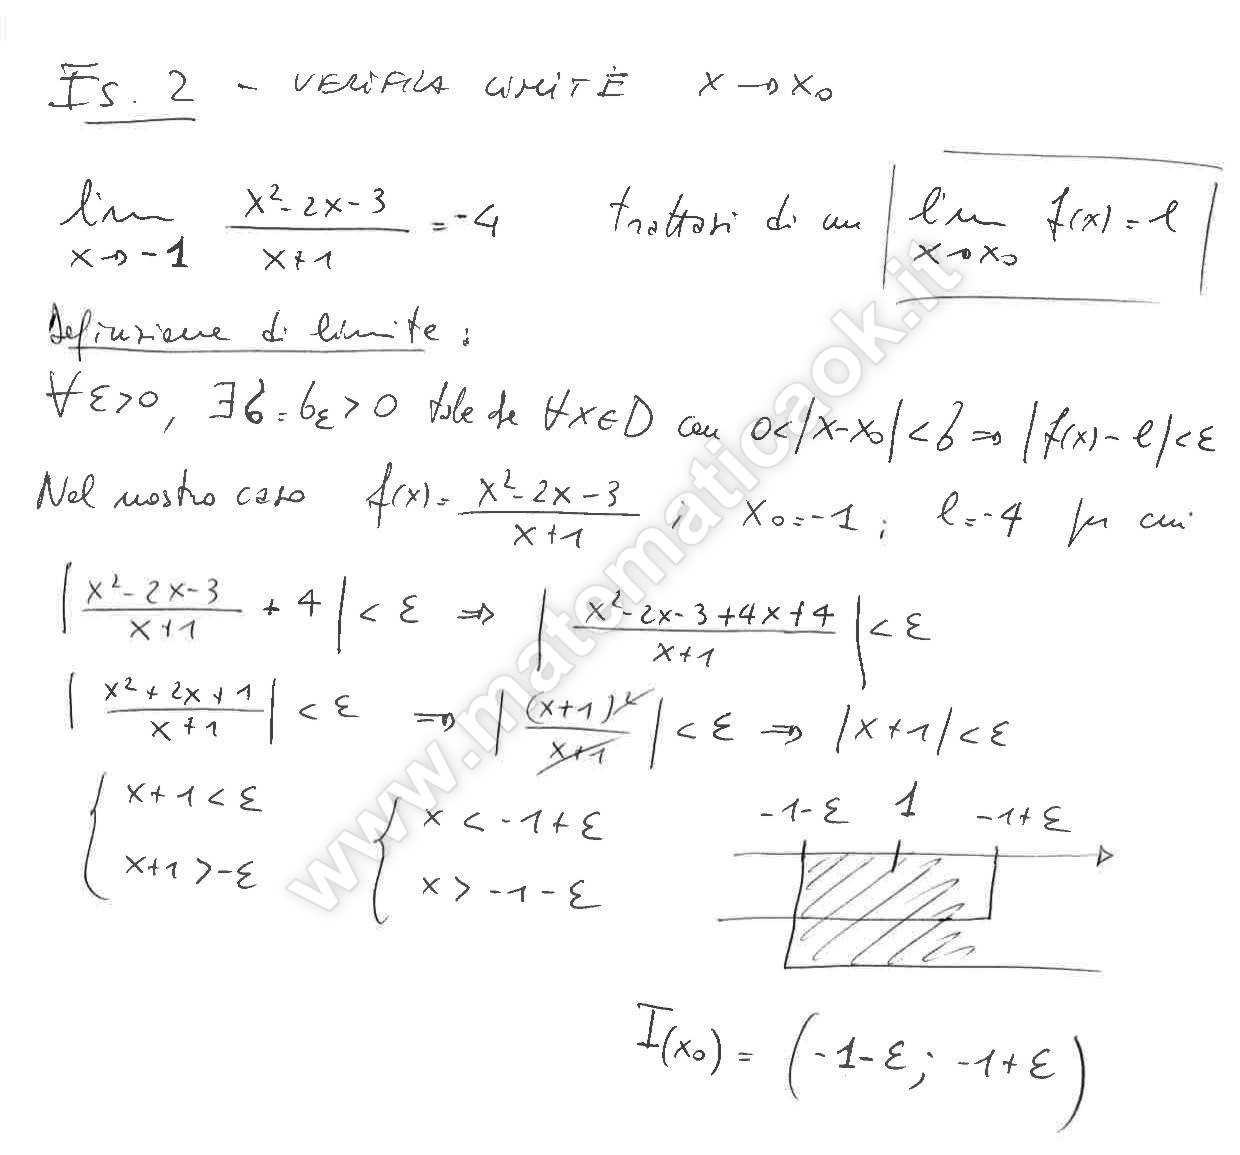 Es. 2 - VERIFICA LIMITE x → x₀
lim x→-1 (x²-2x-3)/(x+1) = -4 trattasi di un lim x→x₀ f(x) = l
Definizione di limite:
∀ε>0, ∃δ=δε>0 tale che ∀x∈D con 0<|x-x₀|<δ ⇒ |f(x)-l|<ε
Nel nostro caso f(x) = (x²-2x-3)/(x+1) ; x₀=-1 ; l=-4 per cui
|(x²-2x-3)/(x+1) + 4| < ε ⇒ |(x²-2x-3+4x+4)/(x+1)| < ε
|(x²+2x+1)/(x+1)| < ε ⇒ |(x+1)²/(x+1)| < ε ⇒ |x+1| < ε
{ x+1<ε { x < -1+ε -1-ε 1 -1+ε
x+1>-ε x > -1-ε
I(x₀) = (-1-ε; -1+ε)
www.matematicaok.it